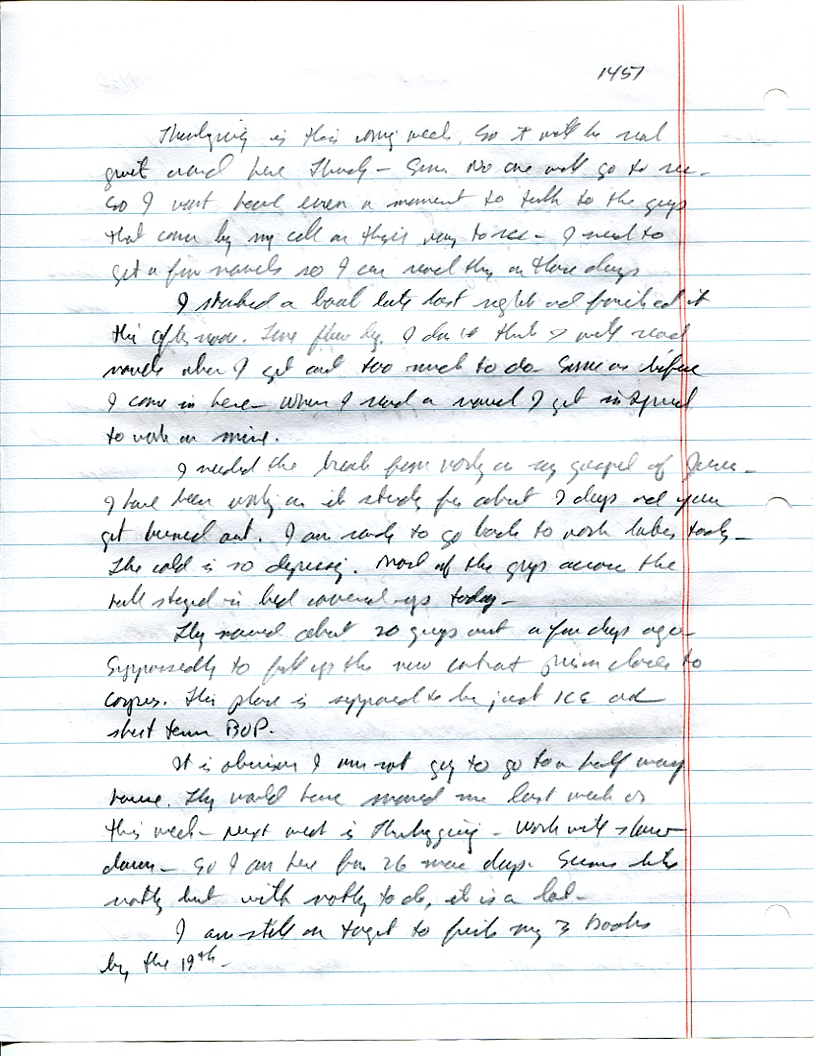 1457
Thanksgiving is this coming week. So it will be real
quiet around here Thursday - Since No one will go to rec.
So I wont have even a moment to talk to the guys
that come by my cell on their way to rec - I need to
get a few novels so I can read them on those days
I started a book late last night and finished it
this afternoon. Time flew by. I don't think I will read
novels when I get out too much to do. Same as before
I came in here - When I read a novel I get inspired
to work on mine.
I needed the break from working on my gospel of Jesus -
I have been working on it steady for about 7 days and you
get burned out. I am ready to go back to work later today -
The cold is so depressing. Most of the guys across the
hall stayed in bed covered-up today -
They moved about 20 guys out a few days ago
Supposedly to fill up the new contract prison closer to
corpus. This place is supposed to be just ICE and
short term BOP.
It is obvious I am not going to go to a half way
house. They would have moved me last week or
this week - Next week is Thanksgiving - Work will slow
down - So I am here for 26 more days. Seems like
nothing but with nothing to do, it is a lot -
I am still on target to finish my 3 books
by the 19th -